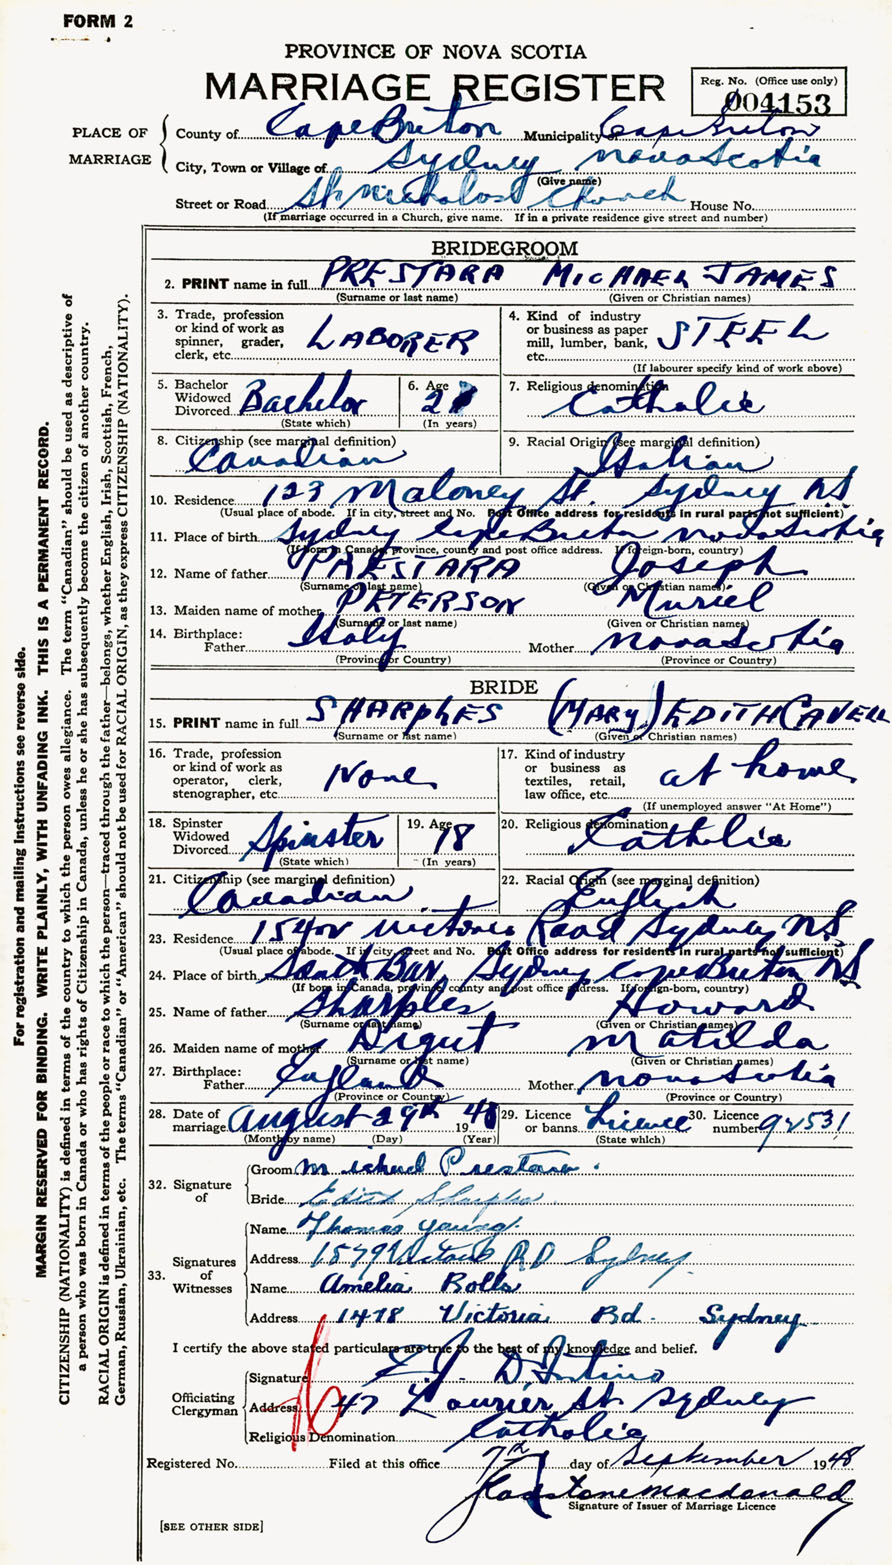 FORM 2
PROVINCE OF NOVA SCOTIA
MARRIAGE REGISTER
Reg. No. (Office use only)
004153
PLACE OF MARRIAGE
County of Cape Breton Municipality Cape Breton
City, Town or Village of Sydney Nova Scotia
(Give name)
Street or Road St Nicholas Church House No.
(If marriage occurred in a Church, give name. If in a private residence give street and number)
BRIDEGROOM
2. PRINT name in full PRESTARA MICHAEL JAMES
(Surname or last name) (Given or Christian names)
3. Trade, profession or kind of work as spinner, grader, clerk, etc. LABORER
4. Kind of industry or business as paper mill, lumber, bank, etc. STEEL
(If labourer specify kind of work above)
5. Bachelor Widowed Divorced Bachelor
(State which)
6. Age 21
(In years)
7. Religious denomination Catholic
8. Citizenship (see marginal definition) Canadian
9. Racial Origin (see marginal definition) Italian
10. Residence 123 Maloney St. Sydney NS
(Usual place of abode. If in city, street and No. Post Office address for residents in rural parts not sufficient)
11. Place of birth Sydney Cape Breton Nova Scotia
(If born in Canada, province, county and post office address. If foreign-born, country)
12. Name of father PRESTARA Joseph
(Surname or last name) (Given or Christian names)
13. Maiden name of mother PETERSON Muriel
(Surname or last name) (Given or Christian names)
14. Birthplace:
Father Italy Mother Nova Scotia
(Province or Country) (Province or Country)
BRIDE
15. PRINT name in full SHARPLES (MARY) EDITH CAVELL
(Surname or last name) (Given or Christian names)
16. Trade, profession or kind of work as operator, clerk, stenographer, etc. None
17. Kind of industry or business as textiles, retail, law office, etc. at home
(If unemployed answer "At Home")
18. Spinster Widowed Divorced Spinster
(State which)
19. Age 18
(In years)
20. Religious denomination Catholic
21. Citizenship (see marginal definition) Canadian
22. Racial Origin (see marginal definition) English
23. Residence Victoria Road Sydney NS
(Usual place of abode. If in city, street and No. Post Office address for residents in rural parts not sufficient)
24. Place of birth South Bar, Sydney Cape Breton NS
(If born in Canada, province, county and post office address. If foreign-born, country)
25. Name of father Sharples Howard
(Surname or last name) (Given or Christian names)
26. Maiden name of mother Matilda
(Surname or last name) (Given or Christian names)
27. Birthplace:
Father England Mother Nova Scotia
(Province or Country) (Province or Country)
28. Date of marriage August 29th 1948
(Month by name) (Day) (Year)
29. Licence or banns Licence
(State which)
30. Licence number 94531
32. Signature of
Groom Michael Prestara
Bride Edith Sharples
33. Signatures of Witnesses
Name Thomas Young
Address 1579 Victoria RD Sydney
Name Amelia Rolls
Address 1478 Victoria Rd. Sydney
I certify the above stated particulars are true to the best of my knowledge and belief.
Officiating Clergyman
Signature D'Intino
Address 47 Laurier St. Sydney
Religious Denomination Catholic
Registered No. Filed at this office 7th day of September 1948
Gladstone Macdonald
Signature of Issuer of Marriage Licence
[SEE OTHER SIDE]
For registration and mailing instructions see reverse side.
MARGIN RESERVED FOR BINDING. WRITE PLAINLY, WITH UNFADING INK. THIS IS A PERMANENT RECORD.
CITIZENSHIP (NATIONALITY) is defined in terms of the country to which the person owes allegiance. The term "Canadian" should be used as descriptive of
a person who was born in Canada or who has rights of Citizenship in Canada, unless he or she has subsequently become the citizen of another country.
RACIAL ORIGIN is defined in terms of the people or race to which the person—traced through the father—belongs, whether English, Irish, Scottish, French,
German, Russian, Ukrainian, etc. The terms "Canadian" or "American" should not be used for RACIAL ORIGIN, as they express CITIZENSHIP (NATIONALITY).